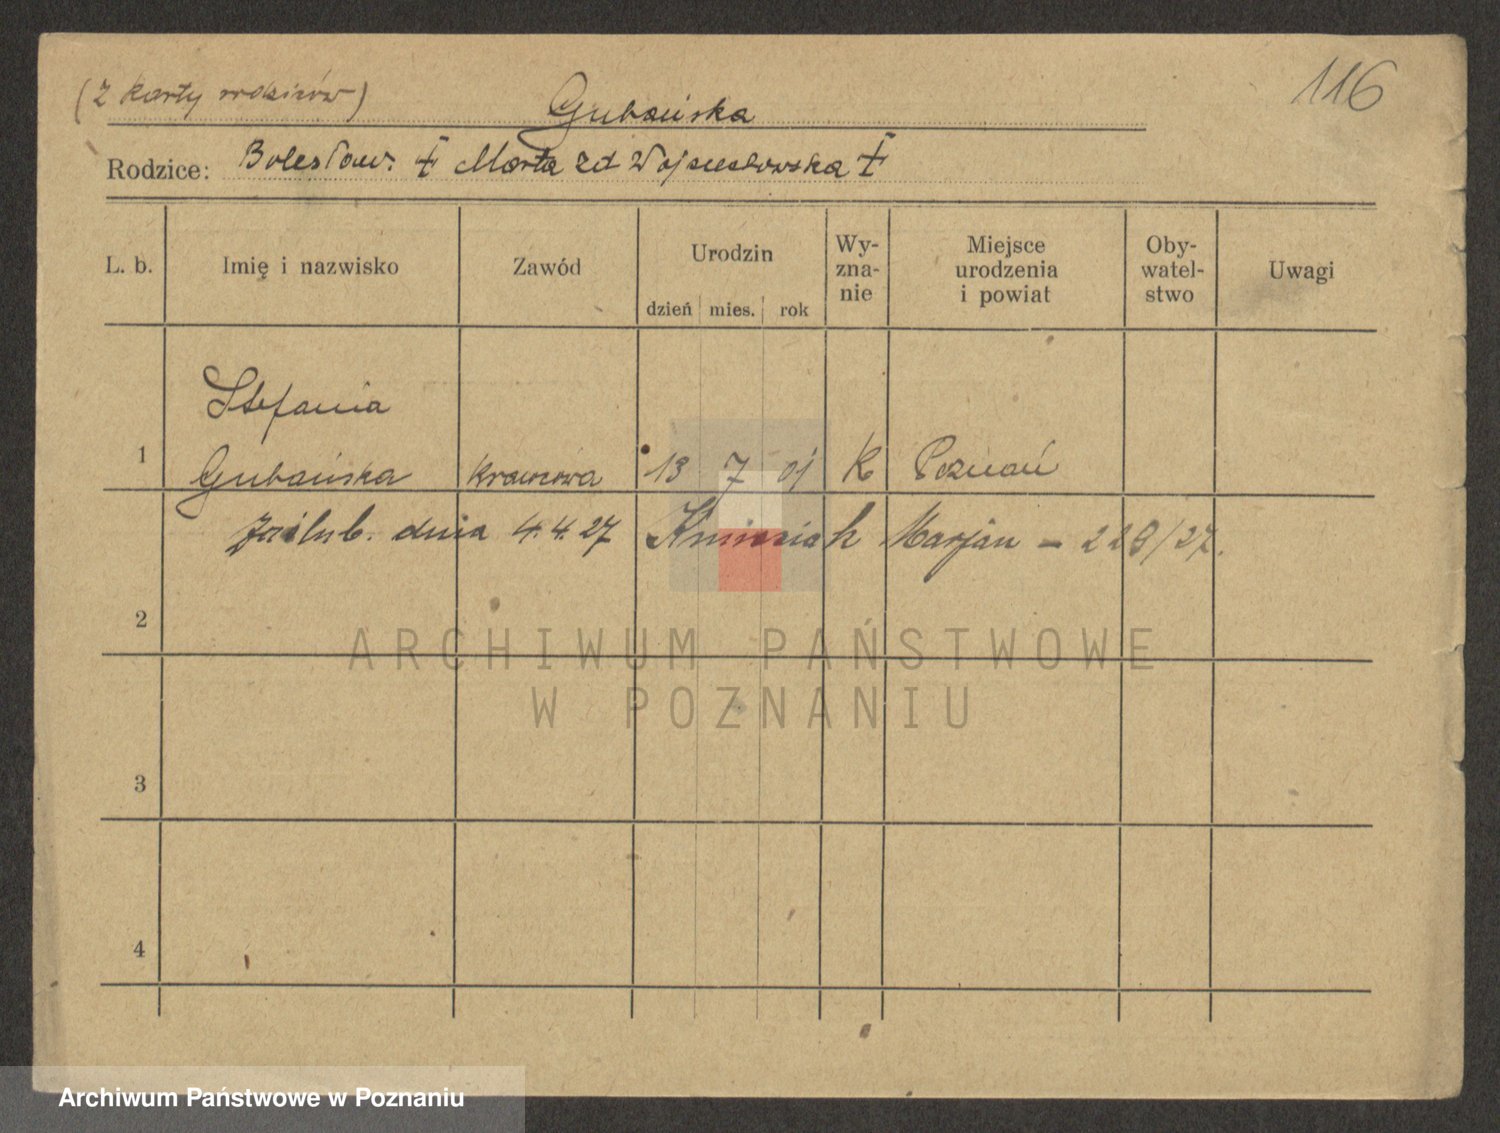 (z karty rodziców)
Gubańska
116
Rodzice: Bolesław. † Marta zd Wojciechowska †
L. b.
Imię i nazwisko
Zawód
Urodzin
dzień mies. rok
Wy-
zna-
nie
Miejsce
urodzenia
i powiat
Oby-
watel-
stwo
Uwagi
Stefania
1 Gubańska krawcowa 13 7 01 K Poznań
Zaślub. dnia 4.4.27 Kmieciak Marjan – 229/27.
2
3
4
ARCHIWUM PAŃSTWOWE
W POZNANIU
Archiwum Państwowe w Poznaniu